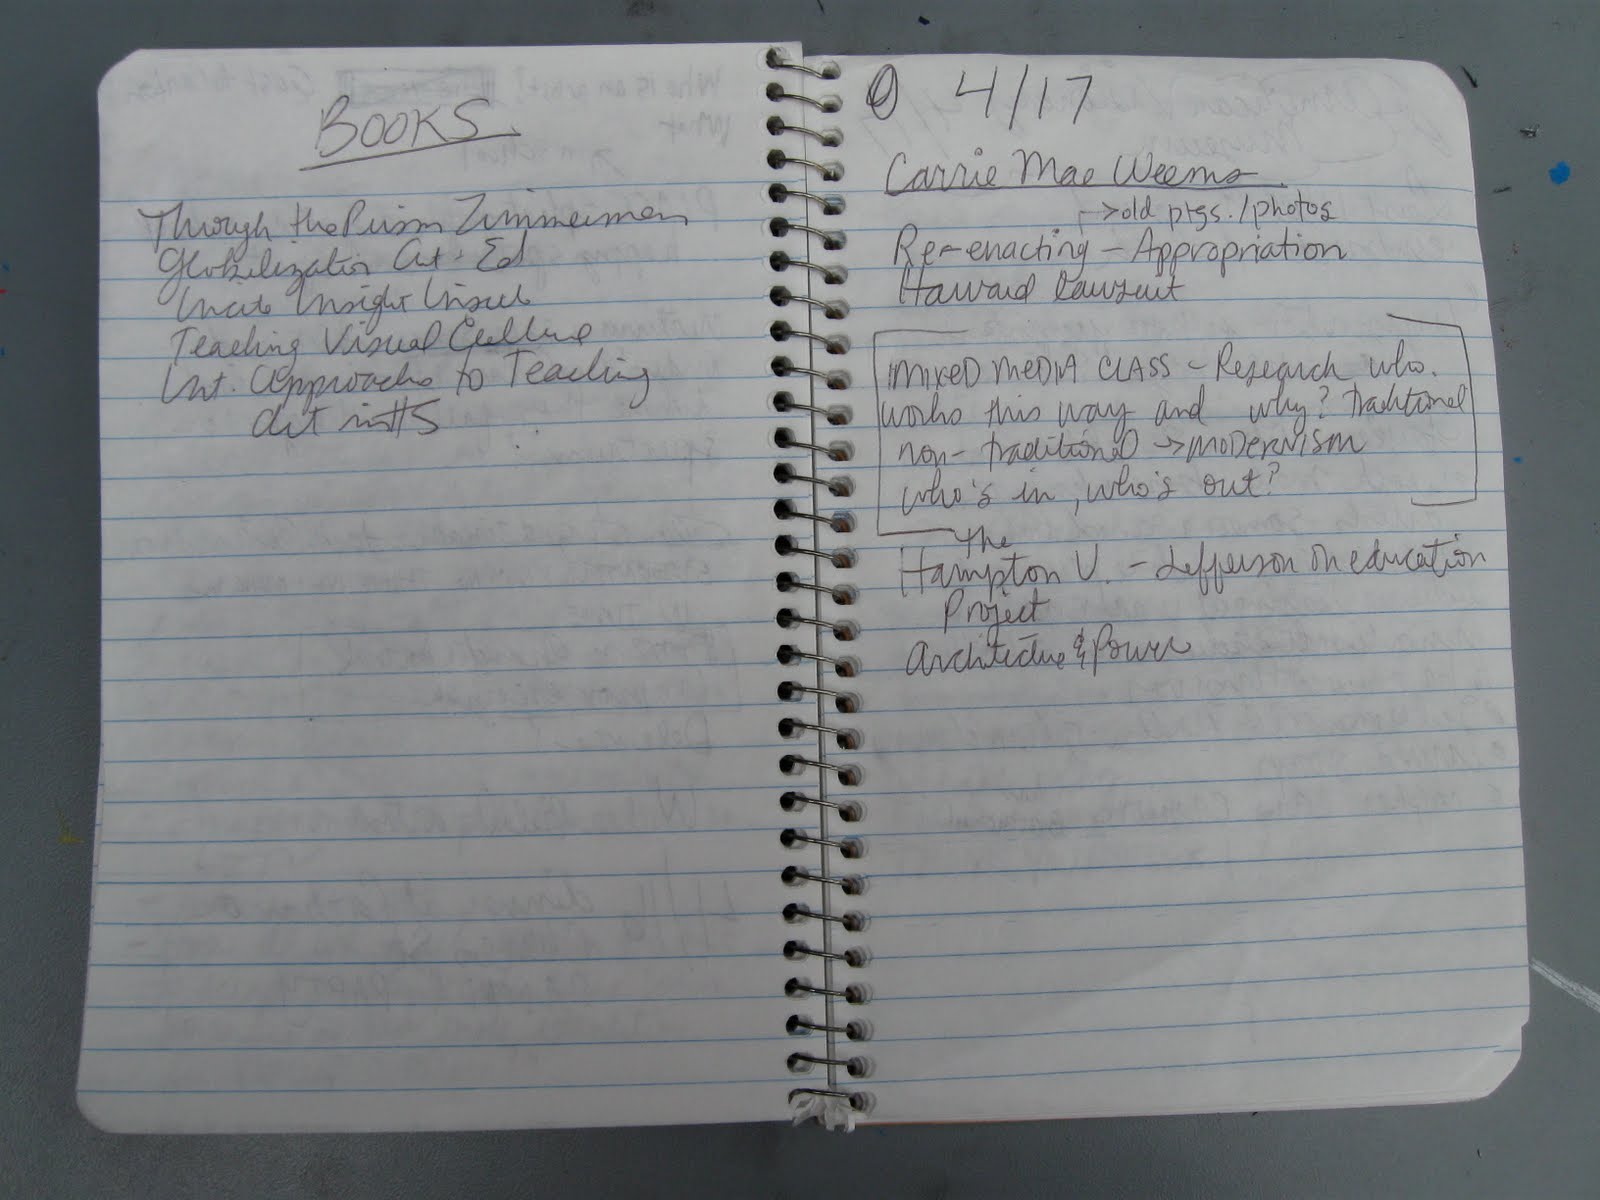 BOOKS
Through the Prism Zimmerman
Globalization Art & Ed
Incite Insight
Teaching Visual Culture
Int. Approachs to Teaching
Art in HS
4/17
Carrie Mae Weems
→ old ptgs./photos
Re-enacting - Appropriation
Harvard lawsuit
MIXED MEDIA CLASS - Research who
works this way and why? traditional
non-traditional → MODERNISM
who's in, who's out?
The
Hampton U. - Jefferson on education
Project
Architecture & Power